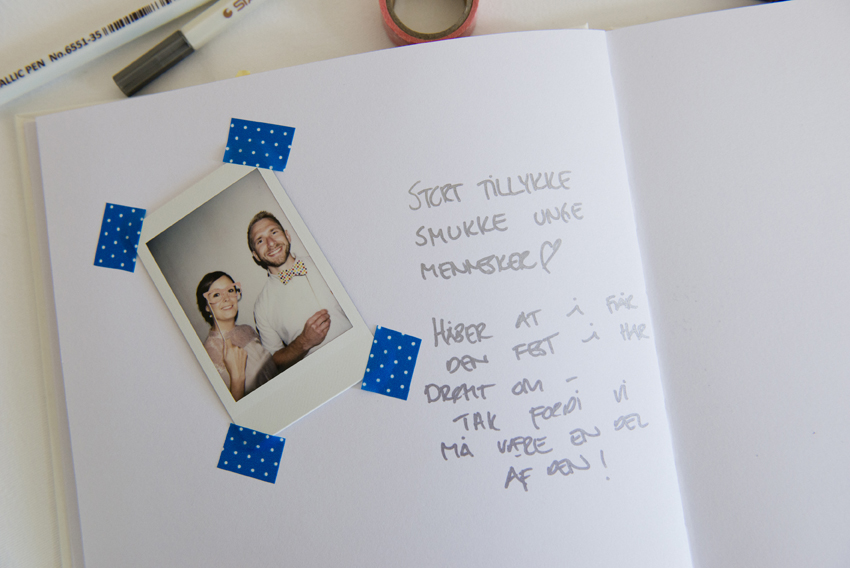 ALLIC PEN No.6551-35
STORT TILLYKKE
SMUKKE UNGE
MENNESKER♡
HÅBER AT i FÅR
DEN FEST i HAR
DRØMT OM –
TAK FORDI VI
MÅ VÆRE EN DEL
AF DEN!